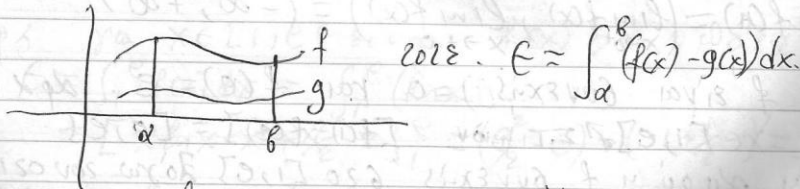 f
g
α β
τότε. E = ∫_α^β (f(x) - g(x)) dx.